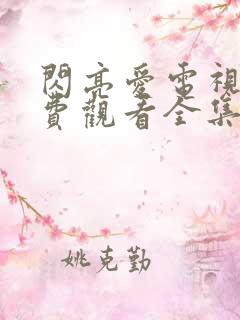 閃亮愛電視
費觀看全集
姚克勤